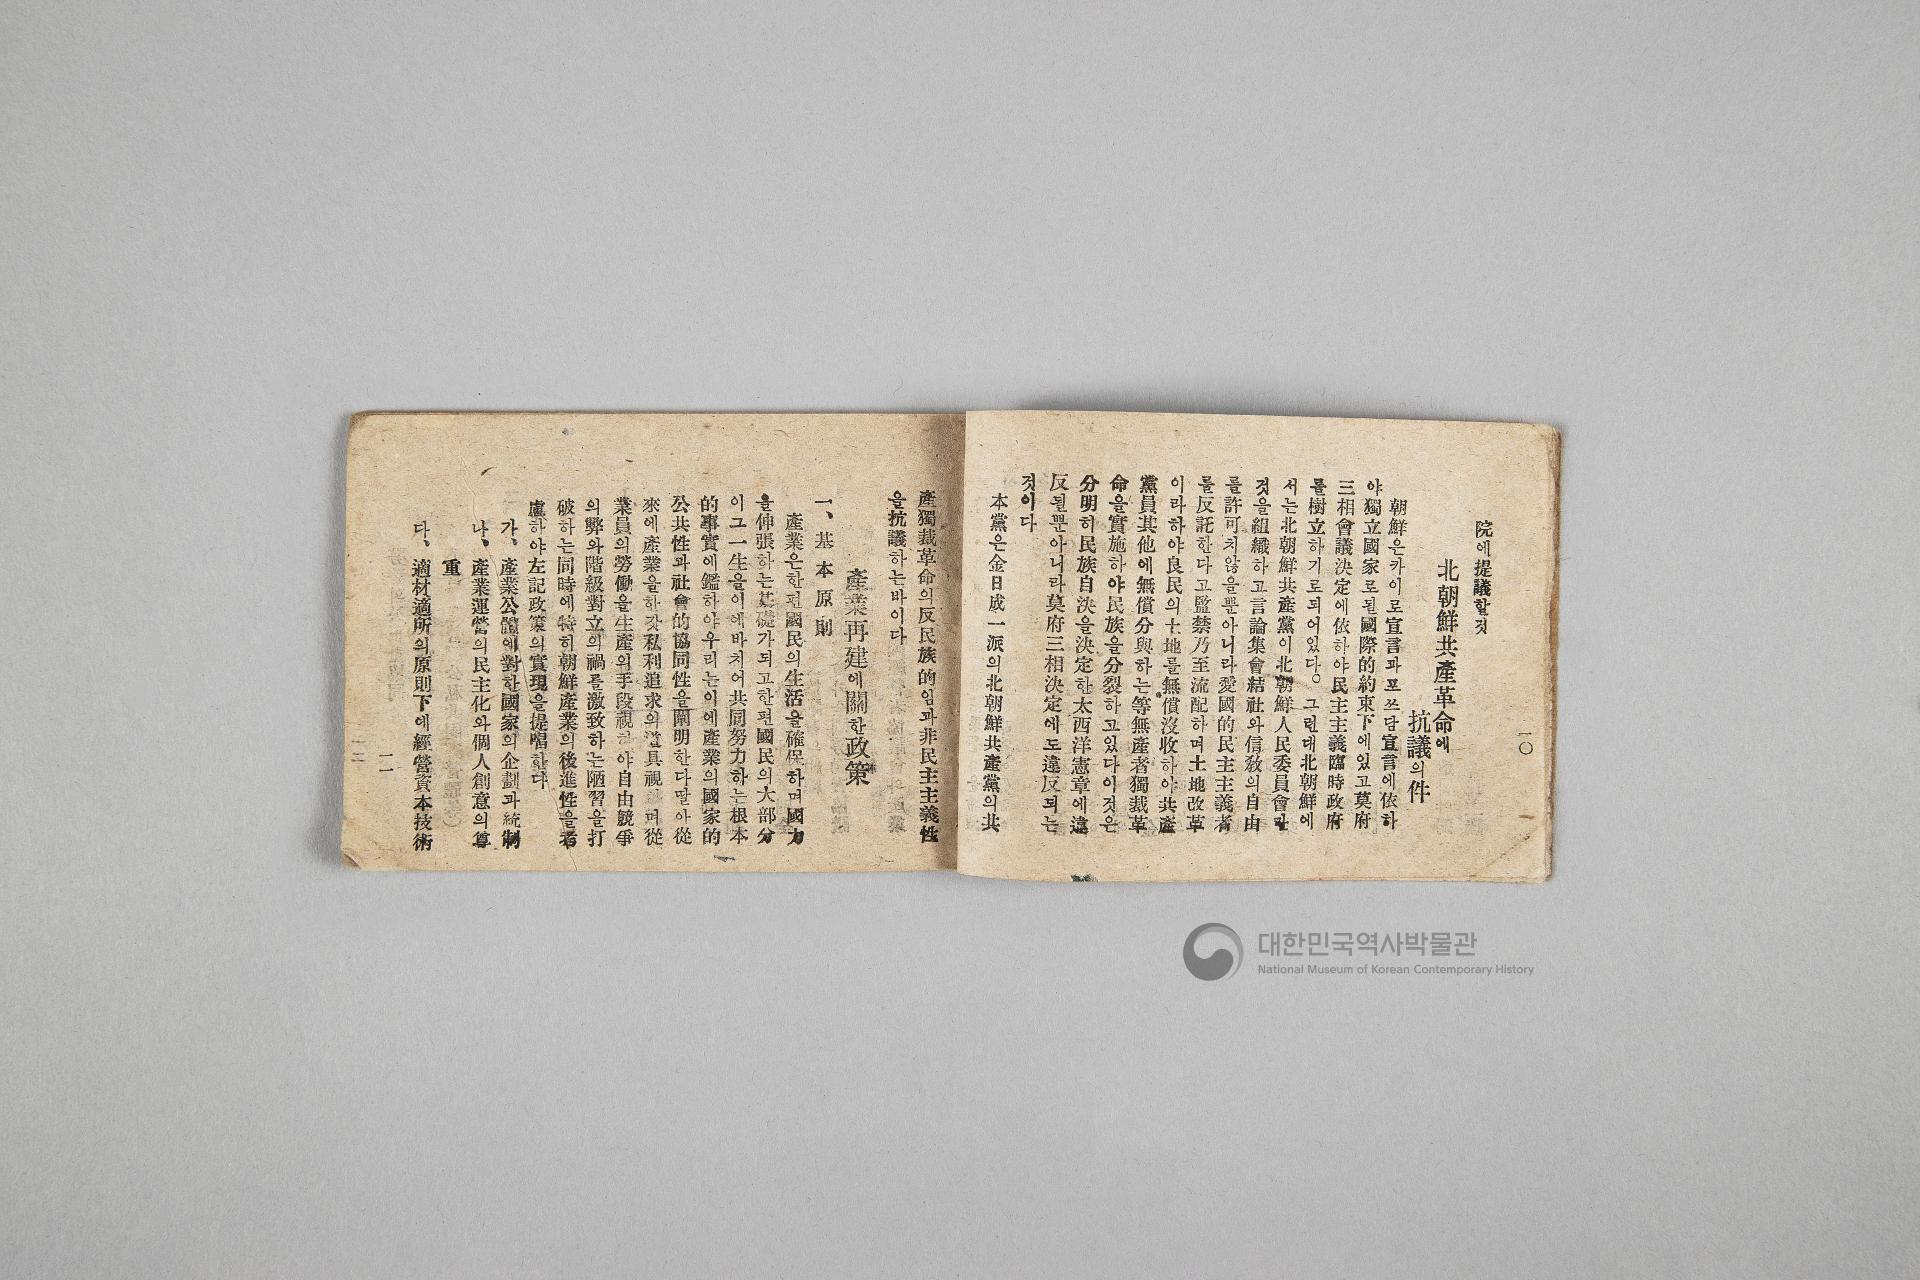 一〇
院에提議할것
北朝鮮共產革命에
抗議의件
朝鮮은카이로宣言과포쓰담宣言에依하
야獨立國家로될國際的約束下에있고莫府
三相會議決定에依하야民主主義臨時政府
를樹立하기로되어있다。그런대北朝鮮에
서는北朝鮮共產黨이北朝鮮人民委員會란
것을組織하고言論集會結社와信敎의自由
를許可치않을뿐아니라愛國的民主主義者
를反託한다고監禁乃至流配하며土地改革
이라하야良民의土地를無償沒收하야共產
黨員其他에無償分與하는等無產者獨裁革
命을實施하야民族을分裂하고있다이것은
分明히民族自決을決定한太西洋憲章에違
反될뿐아니라莫府三相決定에도違反되는
것이다
本黨은金日成一派의北朝鮮共產黨의共
產獨裁革命의反民族的임과非民主主義性
을抗議하는바이다
產業再建에關한政策
一、基本原則
產業은한편國民의生活을確保하며國力
을伸張하는基礎가되고한편國民의大部分
이그一生을이에바치어共同努力하는根本
的事實에鑑하야우리는이에產業의國家的
公共性과社會的協同性을闡明한다딸아從
來에產業을하갓私利追求의道具視하며從
業員의勞働을生產의手段視하야自由競爭
의弊와階級對立의禍를激致하는陋習을打
破하는同時에特히朝鮮產業의後進性을考
慮하야左記政策의實現을提唱한다
가、產業公體에對한國家의企劃과統制
나、產業運營의民主化와個人創意의尊
重
다、適材適所의原則下에經營資本技術
一一
대한민국역사박물관
National Museum of Korean Contemporary History